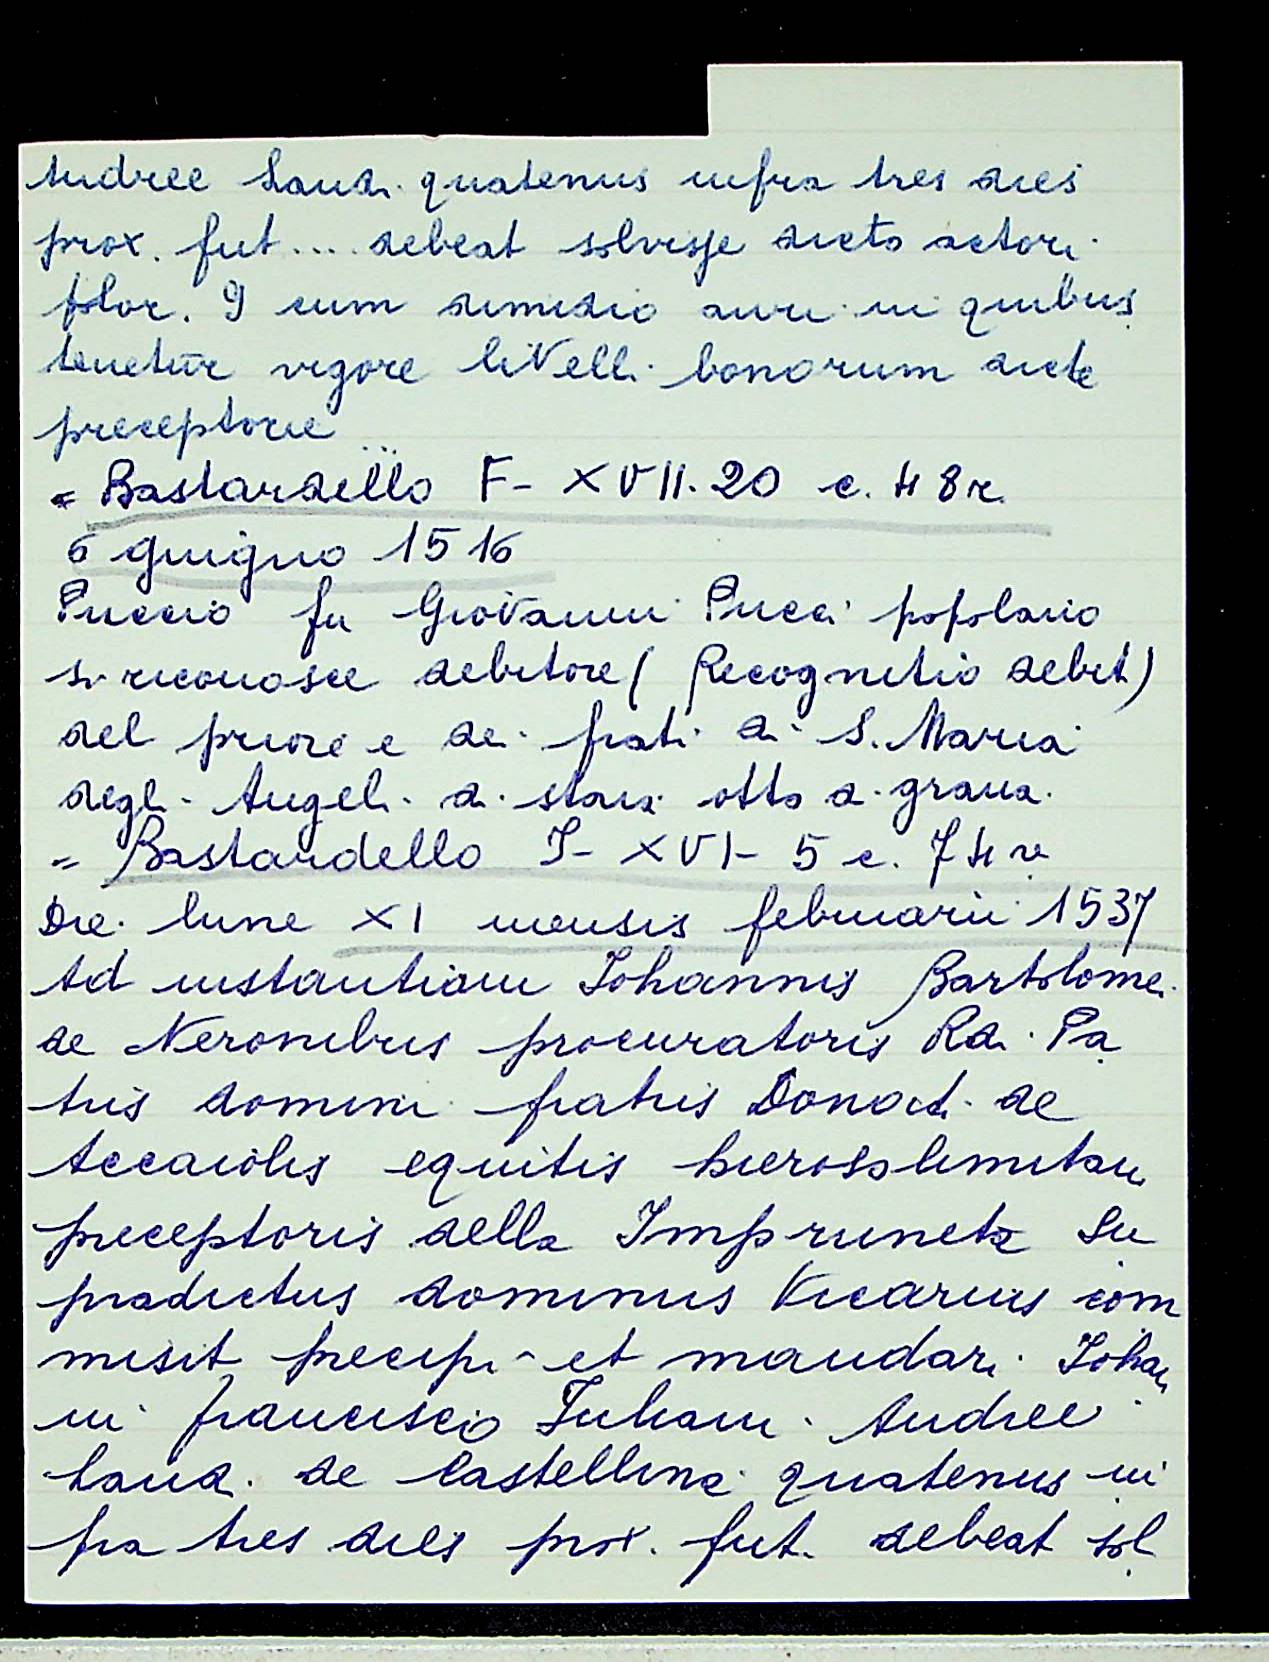 Andree Landi quatenus infra tres dies
prox. fut... debeat solvisse dicto actori
flor. 9 cum dimidio auri in quibus
tenetur vigore livelli bonorum dicte
preceptorie ...
= Bastardello F- XVII.20 c. 48r.
6 giugno 1516
Puccio fu Giovanni Pucci popolano
si riconosce debitore ( Recognitio debit)
del priore e dei frati di S. Maria
degli Angeli di staia otto di grana.
= Bastardello J- XVI- 5 c. 74v
Die lune XI mensis februarii 1537
Ad instantiam Johannis Bartolomei
de Neronibus procuratoris Rdi. Pa
tris domini fratris Donati de
Accaiolis equitis hierosolimitani
preceptoris della Impruneta Su
pradictus dominus Vicarius com
misit precipi et mandari Johan
ni franciscio Juliani Andree
Landi de Castellina quatenus in
fra tres dies prox. fut. debeat sol